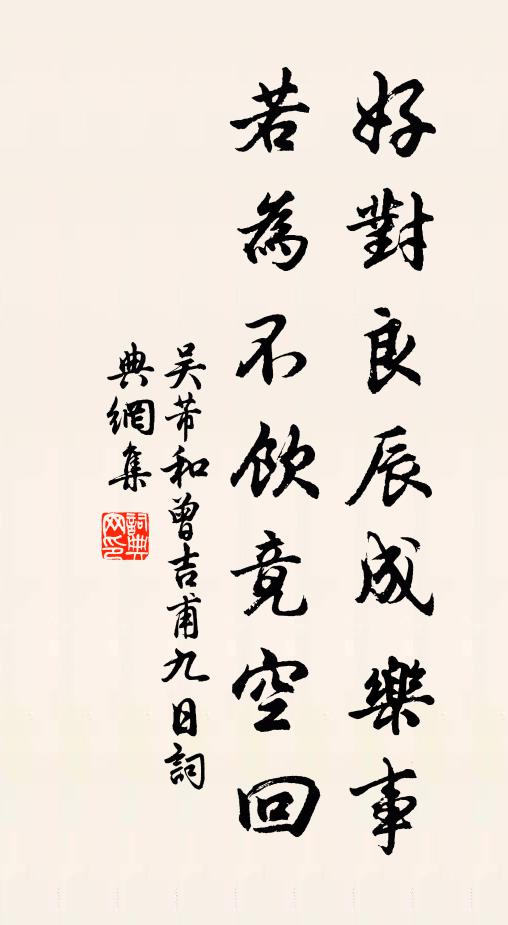 好對良辰成樂事
若為不飲竟空回
吴芾和曾吉甫九日詞
典網集
詞典
网印